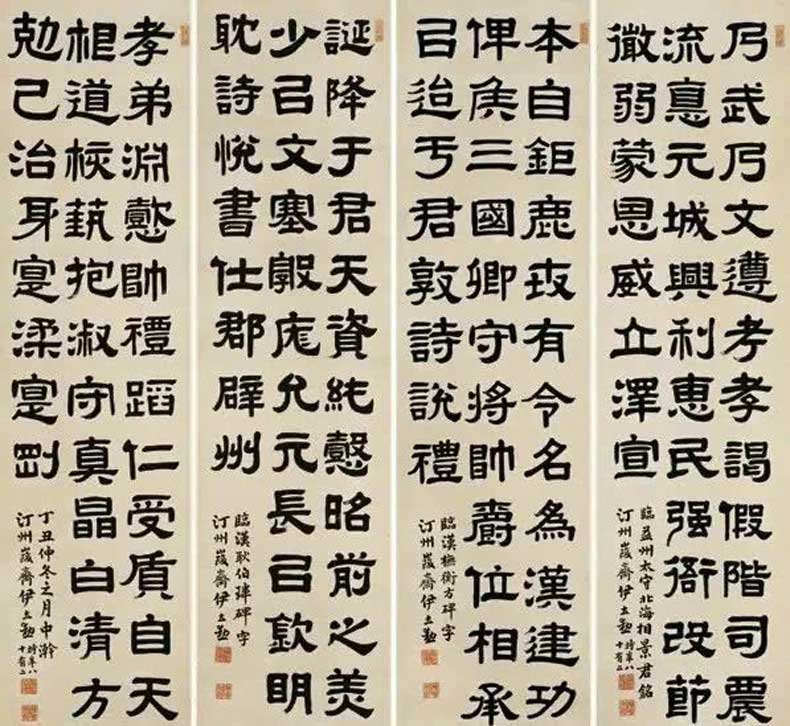 乃武乃文遵考孝謁假階司農
流惪元城興利恵民强衙改節
微弱蒙恩威立澤宣
臨益州太守北海相景君銘
汀州峻齋伊立勳時年八十有二
本自鉅鹿世有令名為漢建功
俾侯三國卿守將帥爵位相承
㠯迨于君敦詩說禮
臨漢橅衡方碑字
汀州峻齋伊立勳
誕降于君天資純懿昭前之美
少㠯文塞敦庬允元長㠯欽明
耽詩悅書仕郡辟州
臨漢耿伯瑋碑字
汀州峻齋伊立勳
孝弟淵懿帥禮蹈仁受質自天
根道核藝抱淑守真晶白清方
勊己治身寔柔寔剛
丁丑仲冬之月中澣
汀州峻齋伊立勳時年八十有二